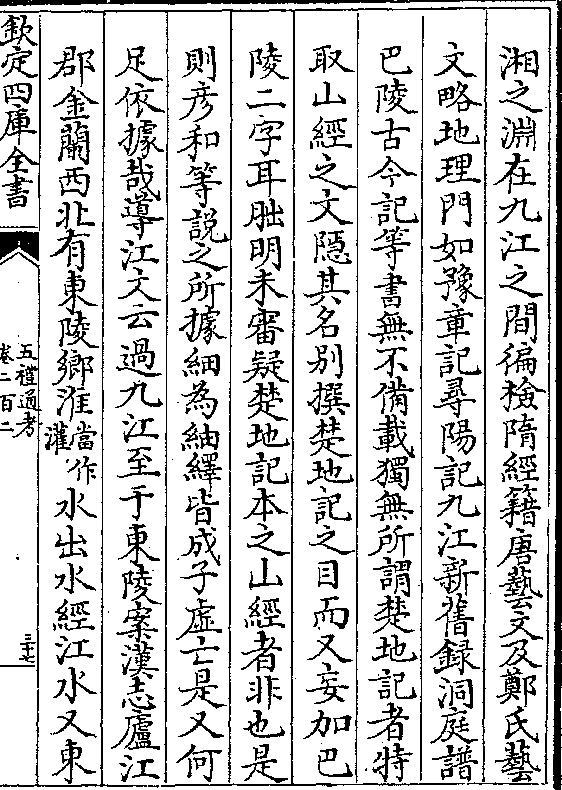 湘之淵在九江之間徧檢隋經籍唐藝文及鄭氏藝
文略地理門如豫章記尋陽記九江新舊錄洞庭譜
巴陵古今記等書無不備載獨無所謂楚地記者特
取山經之文隱其名别撰楚地記之目而又妄加巴
陵二字耳朏明未審疑楚地記本之山經者非也是
則彦和等說之所據細為紬繹皆成子虛亡是又何
足依據哉導江文云過九江至于東陵案漢志廬江
郡金蘭西北有東陵鄉淮當作灌水出水經江水又東
欽定四庫全書
五禮通考
卷二百二
三十七